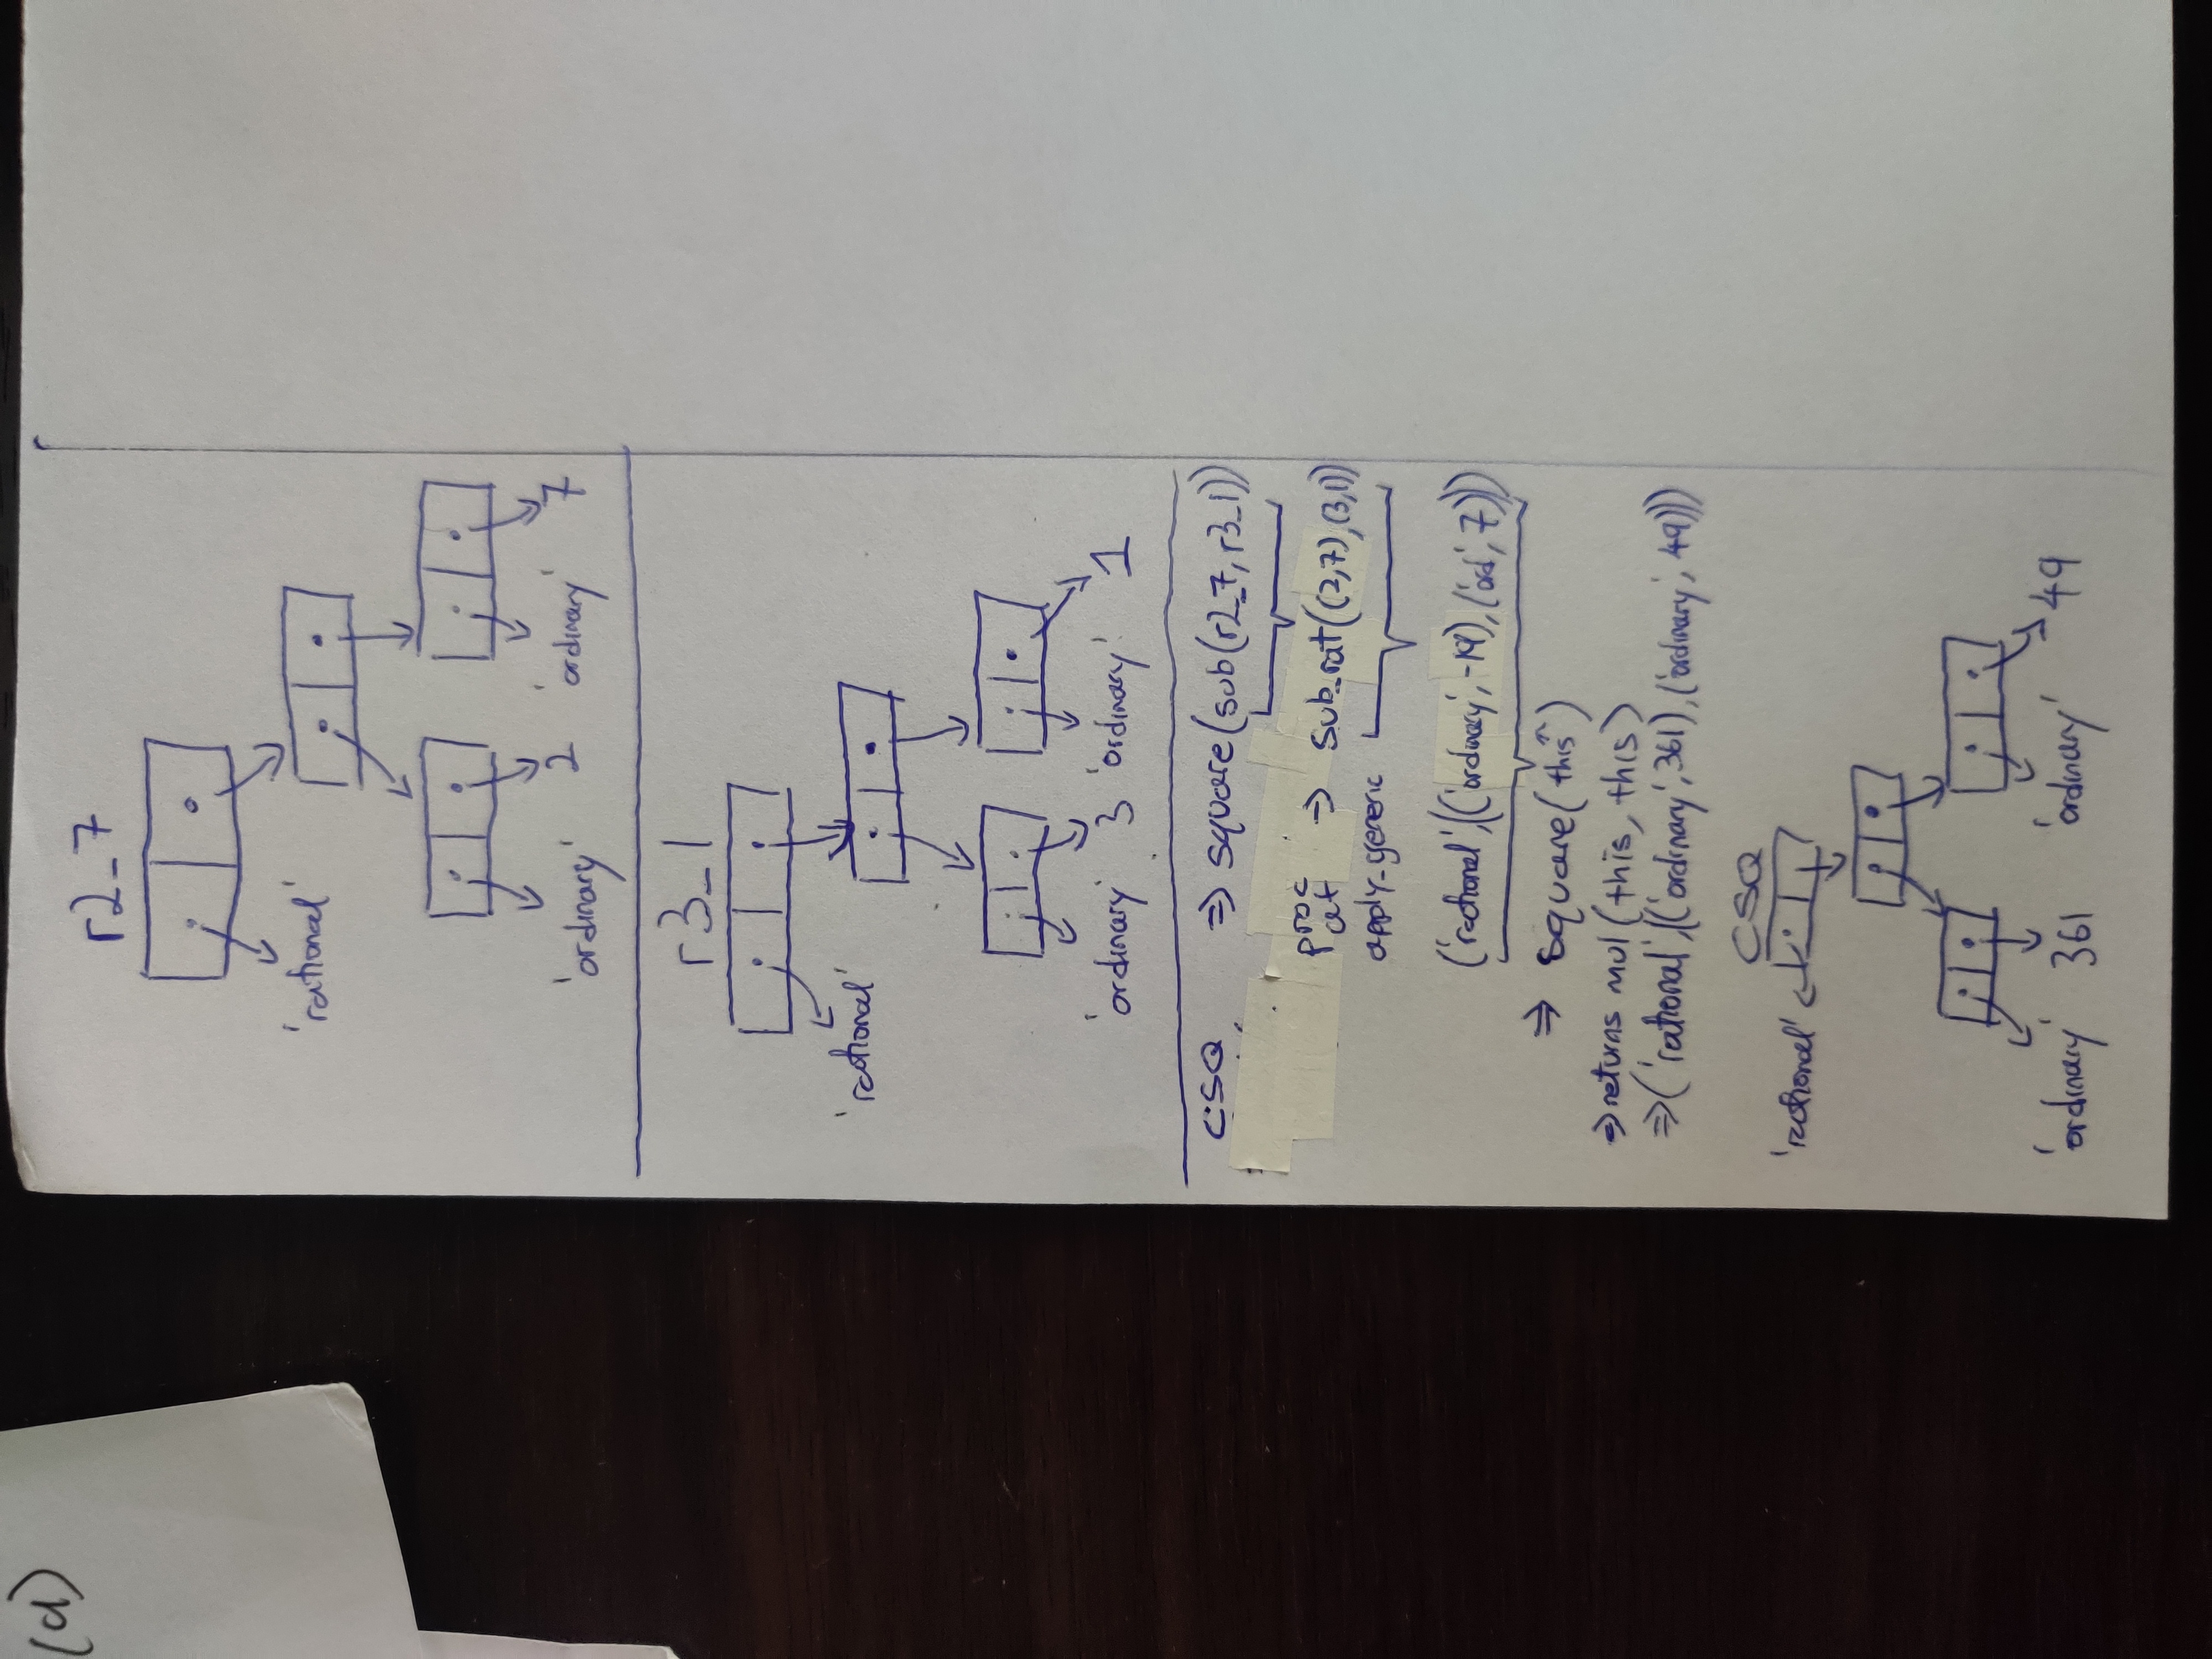 (a)
r2_7
'rational'
'ordinary' 2 'ordinary' 7
r3_1
'rational'
'ordinary' 3 'ordinary' 1
CSQ ⇒ square(sub(r2_7, r3_1))
proc
at ⇒ sub_rat((2,7),(3,1))
apply_generic
('rational',(('ordinary',-19),('ord',7)))
⇒ square(this^)
⇒ returns mul(this, this)
⇒ ('rational',(('ordinary',361),('ordinary',49)))
CSQ
'rational'
'ordinary' 361 'ordinary' 49